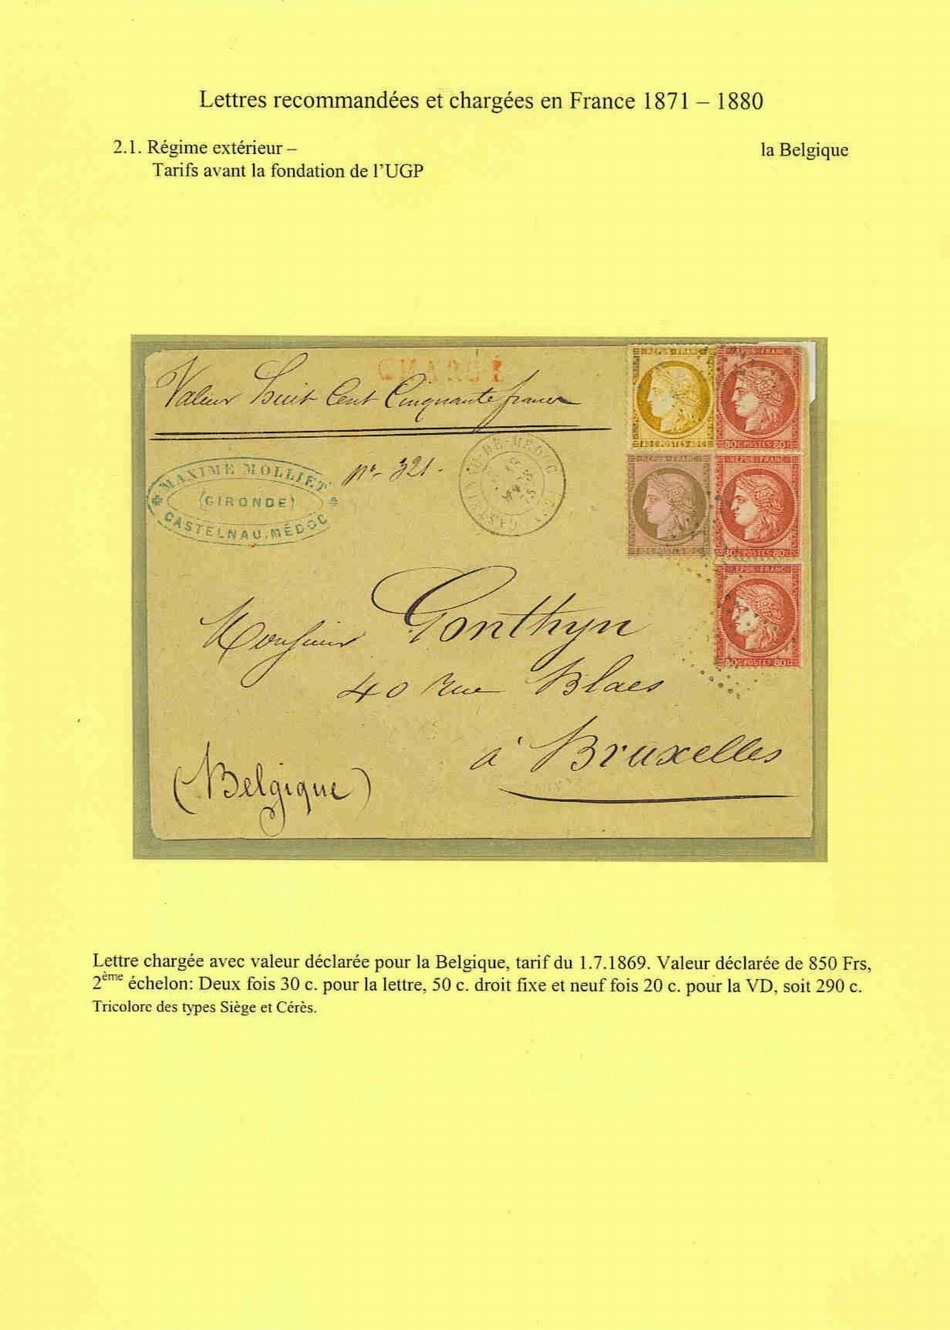 Lettres recommandées et chargées en France 1871 – 1880
2.1. Régime extérieur – la Belgique
Tarifs avant la fondation de l'UGP
CHARGÉ
Valeur Huit Cent Cinquante francs
N° 321.
MAXIME MOLLIET
(GIRONDE)
CASTELNAU. MÉDOC
REPUB. FRANC.
40 C. POSTES 40 C.
REPUB. FRANC.
80 C. POSTES 80 C.
REPUB. FRANC.
10 C. POSTES 10 C.
80 C. POSTES 80 C.
REPUB. FRANC.
80 C. POSTES 80 C.
Monsieur Gonthyn
40 Rue Blaes
à Bruxelles
(Belgique)
Lettre chargée avec valeur déclarée pour la Belgique, tarif du 1.7.1869. Valeur déclarée de 850 Frs,
2ème échelon: Deux fois 30 c. pour la lettre, 50 c. droit fixe et neuf fois 20 c. pour la VD, soit 290 c.
Tricolore des types Siège et Cérès.